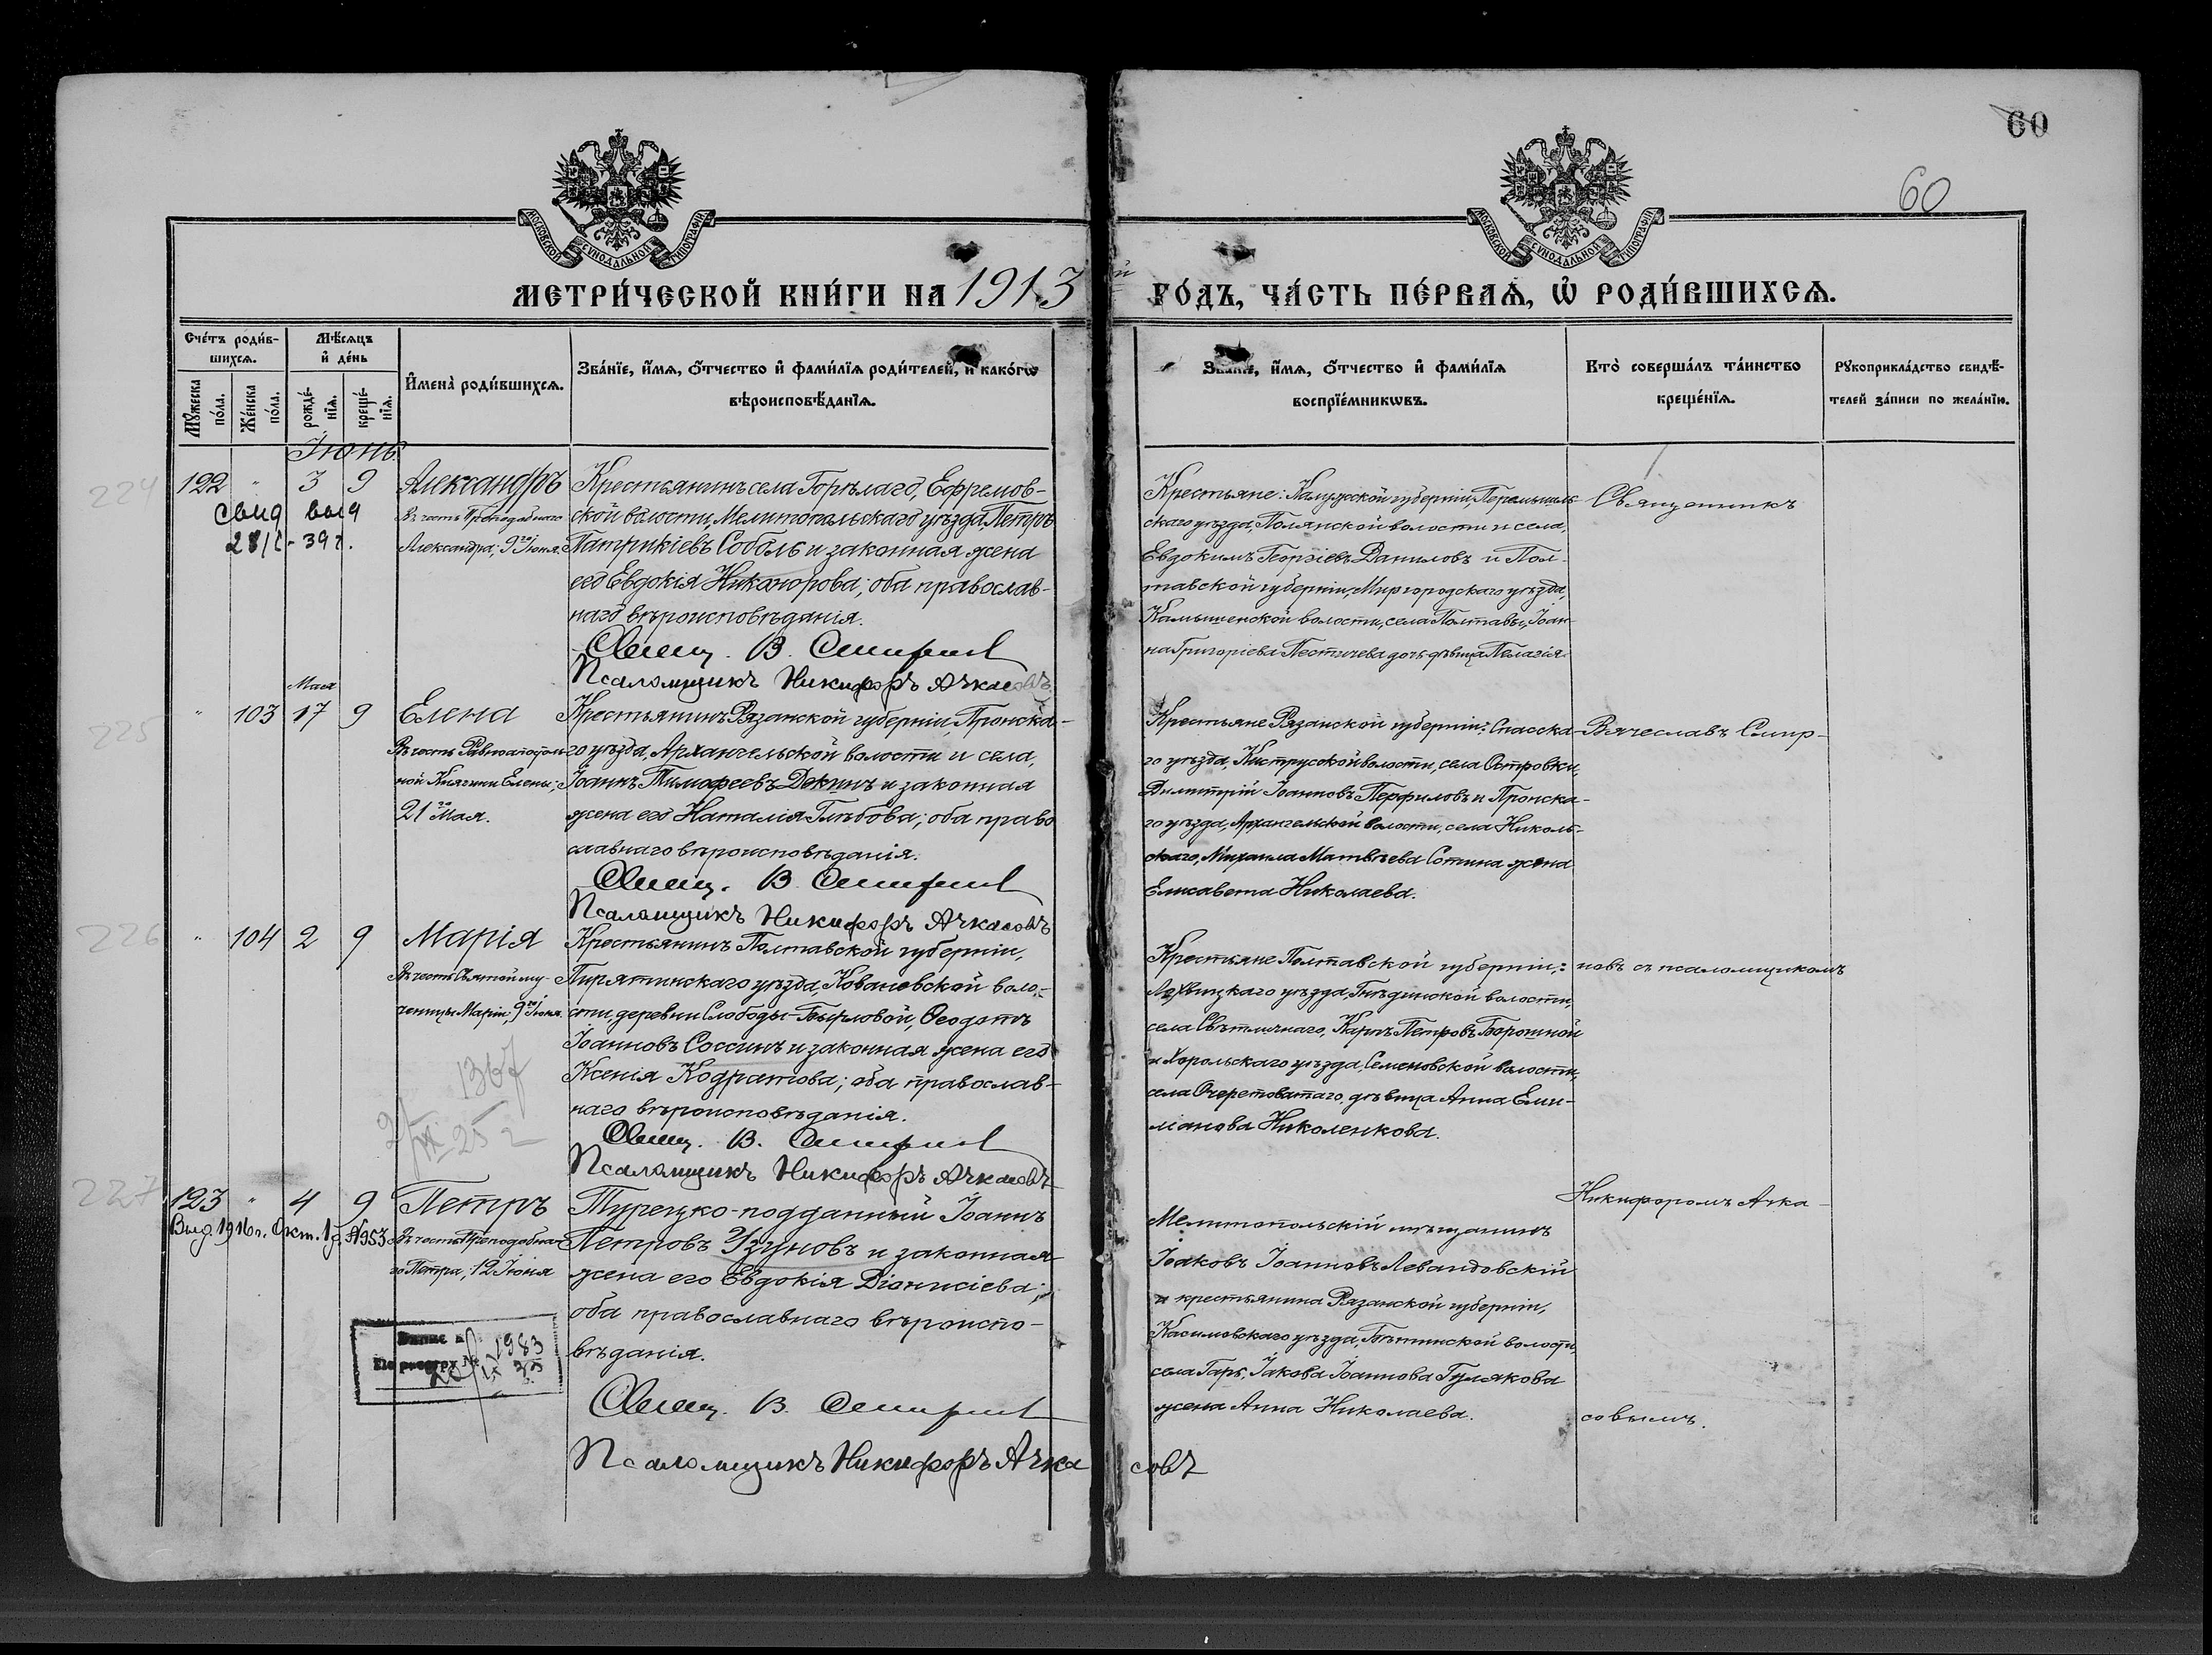 60
60
МОСКОВСКОЙ СУНОДАЛЬНОЙ ТИПОГРАФІИ
МОСКОВСКОЙ СУНОДАЛЬНОЙ ТИПОГРАФІИ
МЕТРИ́ЧЕСКОЙ КНИ́ГИ НА 1913
й
ГО́ДЪ, ЧА́СТЬ ПЕ́РВАѦ, Ѡ РОДИ́ВШИХСѦ.
Сче́тъ роди́в-
шихсѧ.
Мѣ́сѧцъ
и де́нь
Мꙋ́жеска
по́ла.
Же́нска
по́ла.
рожде́-
нїѧ.
креще́-
нїѧ.
Имена̀ роди́вшихсѧ.
Зва́нїе, и́мѧ, о́тчество и фами́лїѧ роди́телей, и како́гѡ
вѣроисповѣ́данїѧ.
Зва́нїе, и́мѧ, о́тчество и фами́лїѧ
воспрїе́мникѡвъ.
Кто̀ соверша́лъ та́инство
креще́нїѧ.
Рꙋкоприкла́дство свидѣ́-
телей за́писи по жела́нїю.
Іюнь
224
122 " 3 9
свид выд
28/I - 39 г.
Александръ
Въ честь Преподобнаго
Александра, 9го Іюня.
Крестьянинъ села Горѣлаго, Ефремов-
ской волости, Мелитопольскаго уѣзда, Петръ
Патрикіевъ Соболь и законная жена
его Евдокія Никанорова; оба православ-
наго вѣроисповѣданія.
Свящ. В. Смирнов
Псаломщикъ Никифоръ Ачкасовъ
Крестьяне: Калужской губерніи, Перемышль-
скаго уѣзда, Полянской волости и села,
Евдокимъ Георгіевъ Даниловъ и Пол-
тавской губерніи, Миргородскаго уѣзда,
Камышенской волости, села Полтавы, Іоан-
на Григоріева дочь дѣвица Пелагія.
Священникъ
Мая
225
" 103 17 9
Елена
Въ честь Равноапостоль-
ной Княгини Елены,
21го Мая.
Крестьянинъ Рязанской губерніи, Пронска-
го уѣзда, Архангельской волости и села,
Іоаннъ Тимофеевъ Докинъ и законная
жена его Наталія Глѣбова; оба право
славнаго вѣроисповѣданія.
Свящ. В. Смирнов
Псаломщикъ Никифоръ Ачкасовъ
Крестьяне Рязанской губерніи: Спасска-
го уѣзда, Киструсской волости, села Островки,
Димитрій Іоанновъ Перфиловъ и Пронска-
го уѣзда, Архангельской волости, села Николь-
скаго, Михаила Матвѣева Сотина жена
Елисавета Николаева.
Вячеславъ Смир-
226
" 104 2 9
Марія
Въ честь Святой му-
ченицы Маріи, 9го Іюня.
1367
25 г
Крестьянинъ Полтавской губерніи,
Пирятинскаго уѣзда, Ковалевской воло-
сти, деревни Слободы-Бырловой, Ѳеодотъ
Іоанновъ Соссинъ и законная жена его
Ксенія Кодратова; оба православ-
наго вѣроисповѣданія.
Свящ. В. Смирнов
Псаломщикъ Никифоръ Ачкасовъ
Крестьяне Полтавской губерніи:
Лохвицкаго уѣзда, Гнѣдинской волости,
села Свѣтличнаго, Карпъ Петровъ Борошной
и Хорольскаго уѣзда, Семеновской волости,
села Очеретоватаго, дѣвица Анна Еми-
ліанова Николенкова.
новъ съ псаломщикомъ
227
123 " 4 9
Выд. 1916 г. Окт. 1 д. №953
Петръ
Въ честь Преподобна-
го Петра, 12 Іюня
Турецко-подданный Іоаннъ
Петровъ Узуновъ и законная
жена его Евдокія Діонисіева;
оба православнаго вѣроиспо-
вѣданія.
Свящ. В. Смирнов
Псаломщикъ Никифоръ Ачкасовъ
По реестру № 1983
Мелитопольскій мѣщанинъ
Іоаковъ Іоанновъ Левандовскій
и крестьянина Рязанской губерніи,
Касимовскаго уѣзда, Бѣтинской волости,
села Гарь, Іакова Іоаннова Гулякова
жена Анна Николаева.
Никифоромъ Ачка-
совымъ.